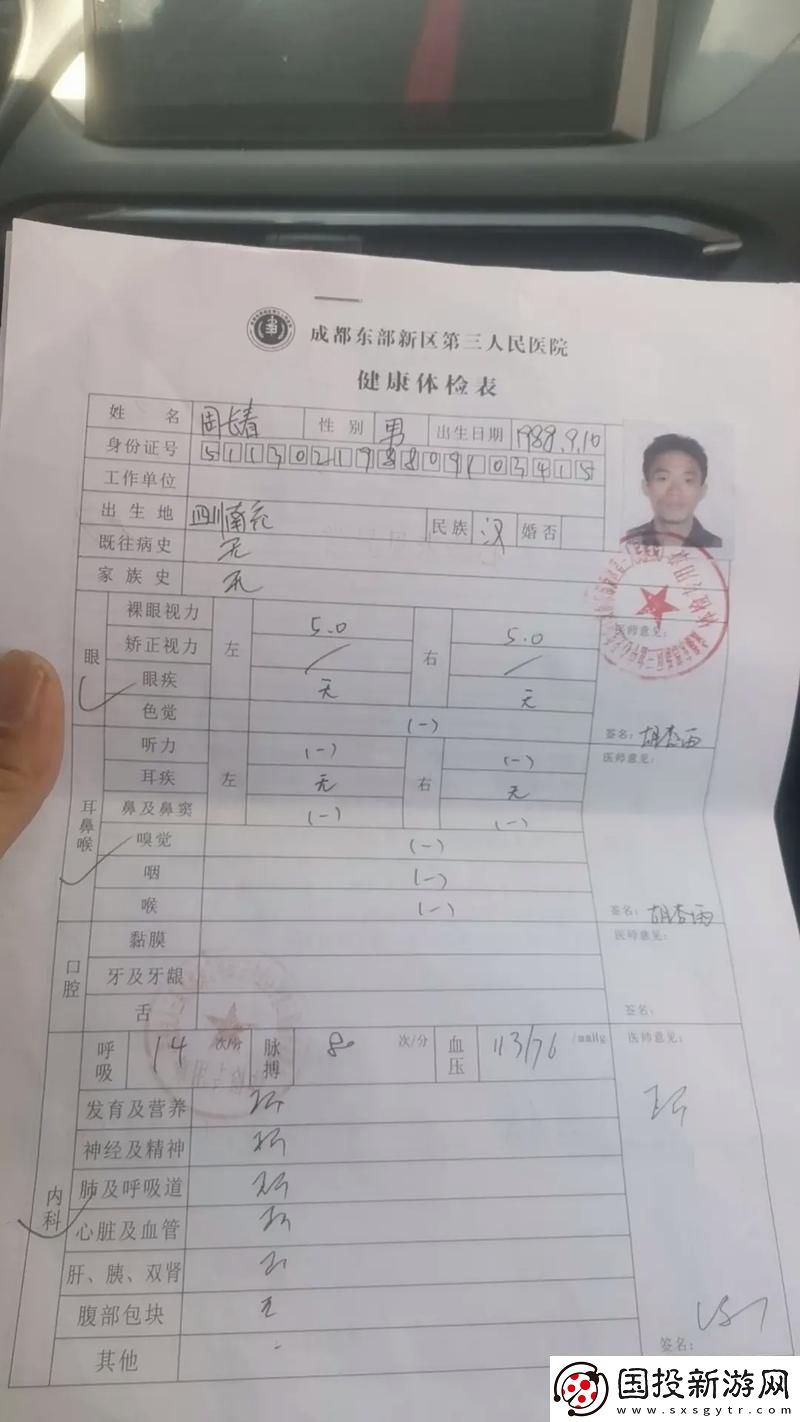 成都东部新区第三人民医院
健康体检表
姓 名 周长春 性 别 男 出生日期 1988.9.10
身份证号
工作单位
出 生 地 四川南充 民族 汉 婚否
既往病史 无
家 族 史 无
眼
裸眼视力 左 5.0 右 5.0 医师意见:
矫正视力 / /
眼疾 无 无
色觉 (-) 签名:
耳鼻喉
听力 左 (-) 右 (-) 医师意见:
耳疾 无 无
鼻及鼻窦 (-) (-)
嗅觉 (-)
咽 (-)
喉 (-) 签名:
口腔
黏膜 医师意见:
牙及牙龈
舌 签名:
内科
呼吸 14 次/分 脉搏 80 次/分 血压 113/76 /mmHg 医师意见:
发育及营养
神经及精神
肺及呼吸道
心脏及血管
肝、胰、双肾
腹部包块 无
其他 -
签名:
国投新游网
www.sxsgytr.com